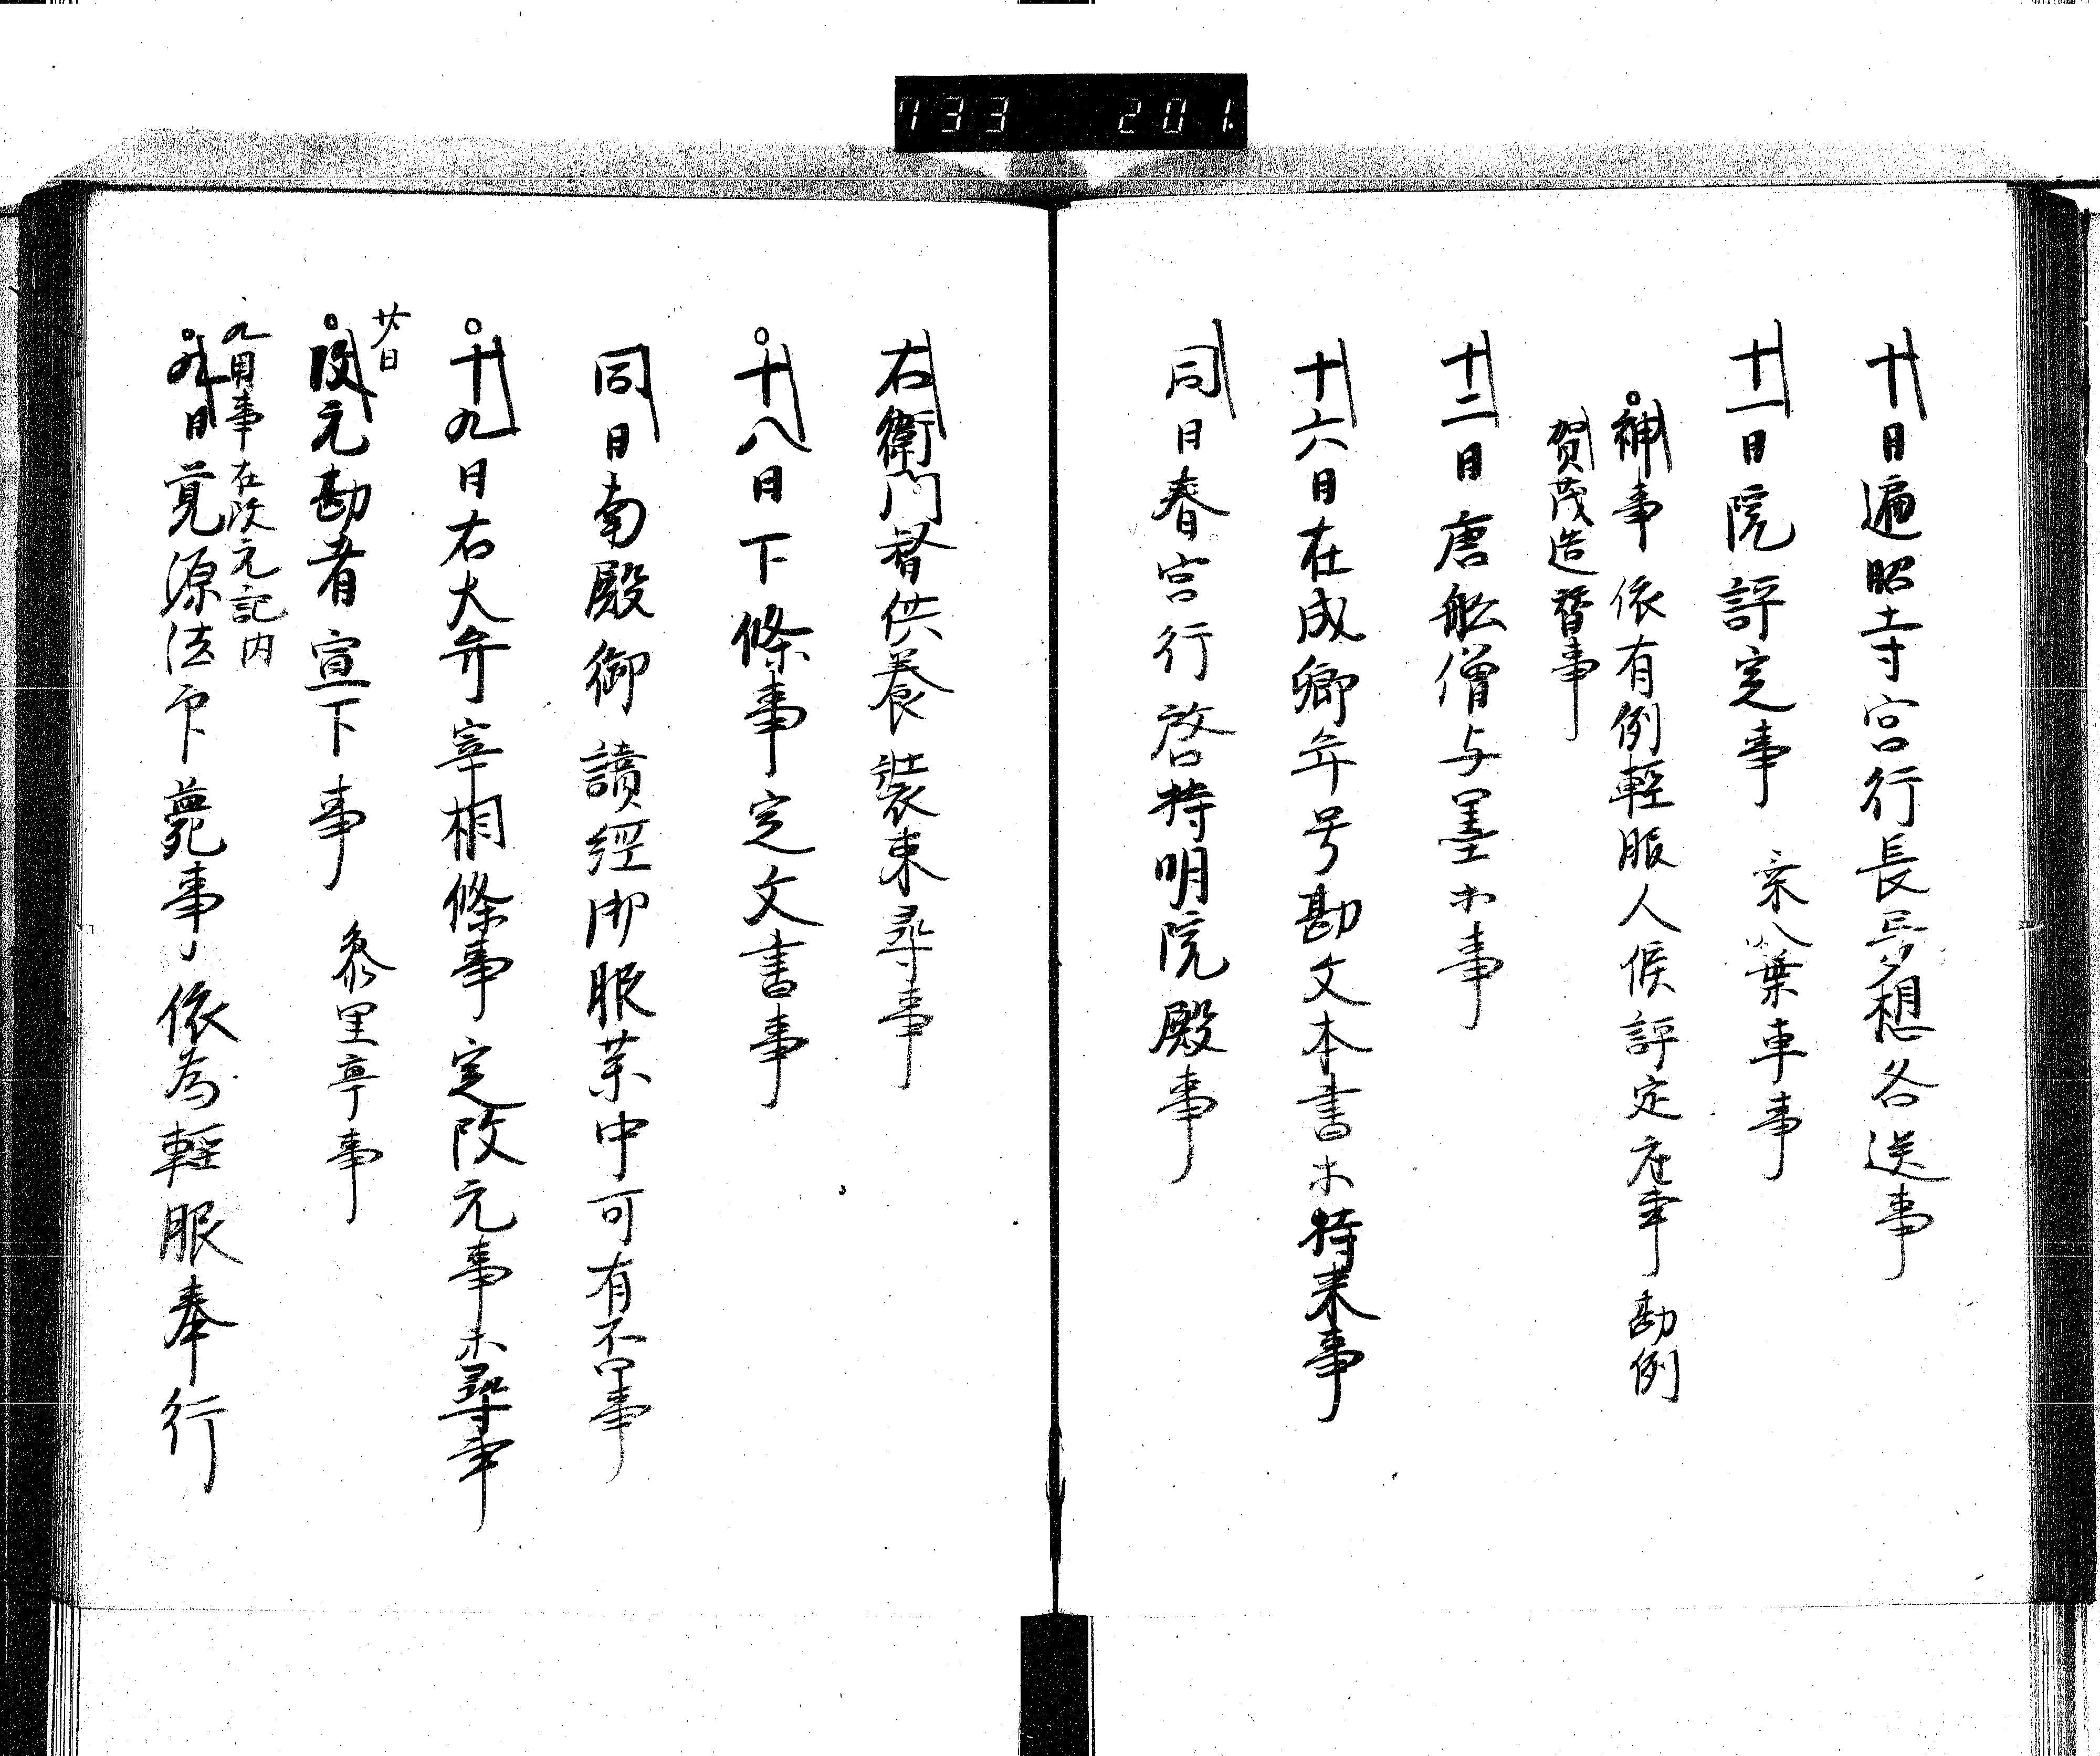 733 201
十日遍昭寺宮行長長夢想各送事
十一日院評定事 乗八葉車事
神事 依有例軽服人候評定座事 勘例
賀茂造替事
十二日唐舩僧与墨木事
十六日在成卿年号勘文本書木持来事
同日春宮行啓持明院殿事
右衛門督供養装束尋事
十八日下條事定文書事
同日南殿御讀經御服薬中可有否事
十九日右大弁宰相條事定改元事木尋事
廿日
改元勘者宣下事 参里亭事
九月事在改元記内
九日覚源法印薨事 依為軽服奉行